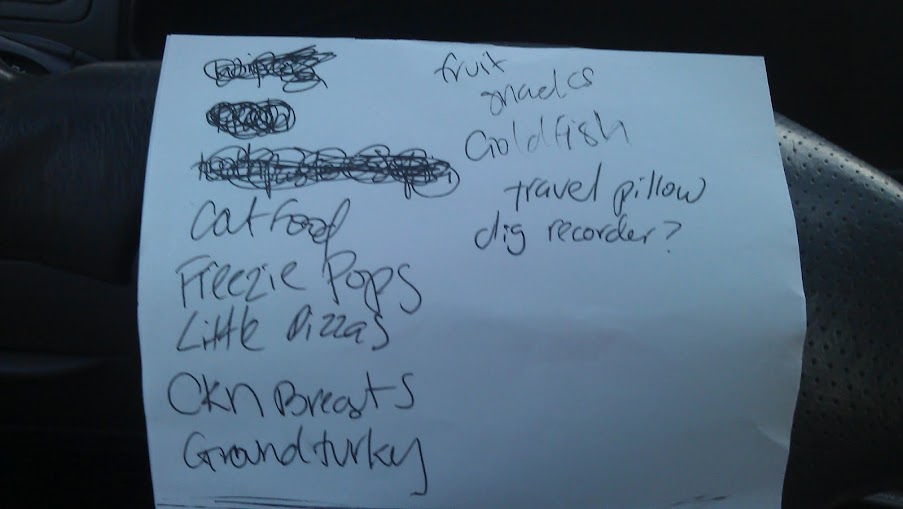 Cat Food
Freezie Pops
Little Pizzas
Ckn Breasts
Ground turky
fruit
snacks
Goldfish
travel pillow
dig recorder?